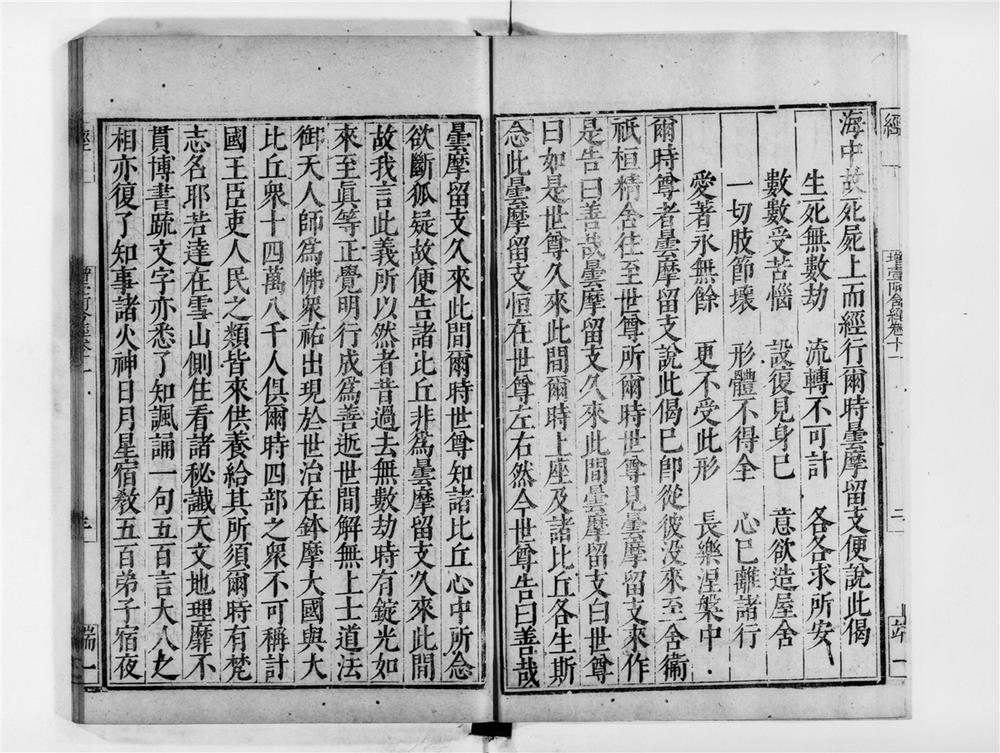 經
增壹阿含經卷十一
二
端一
海中故死屍上而經行爾時曇摩留支便說此偈
生死無數劫 流轉不可計 各各求所安
數數受苦惱 設復見身已 意欲造屋舍
一切肢節壞 形體不得全 心已離諸行
愛著永無餘 更不受此形 長樂涅槃中
爾時尊者曇摩留支說此偈已卽從彼沒來至舍衞
祇桓精舍往至世尊所爾時世尊見曇摩留支來作
是告曰善哉曇摩留支久來此間曇摩留支白世尊
曰如是世尊久來此間爾時上座及諸比丘各生斯
念此曇摩留支恒在世尊左右然今世尊告曰善哉
曇摩留支久來此間爾時世尊知諸比丘心中所念
欲斷狐疑故便告諸比丘非爲曇摩留支久來此間
故我言此義所以然者昔過去無數劫時有錠光如
來至眞等正覺明行成爲善逝世間解無上士道法
御天人師爲佛衆祐出現於世治在鉢摩大國與大
比丘衆十四萬八千人俱爾時四部之衆不可稱計
國王臣吏人民之類皆來供養給其所須爾時有梵
志名耶若達在雪山側住看諸秘讖天文地理靡不
貫博書䟽文字亦悉了知諷誦一句五百言大人之
相亦復了知事諸火神日月星宿敎五百弟子宿夜
經
三
端一